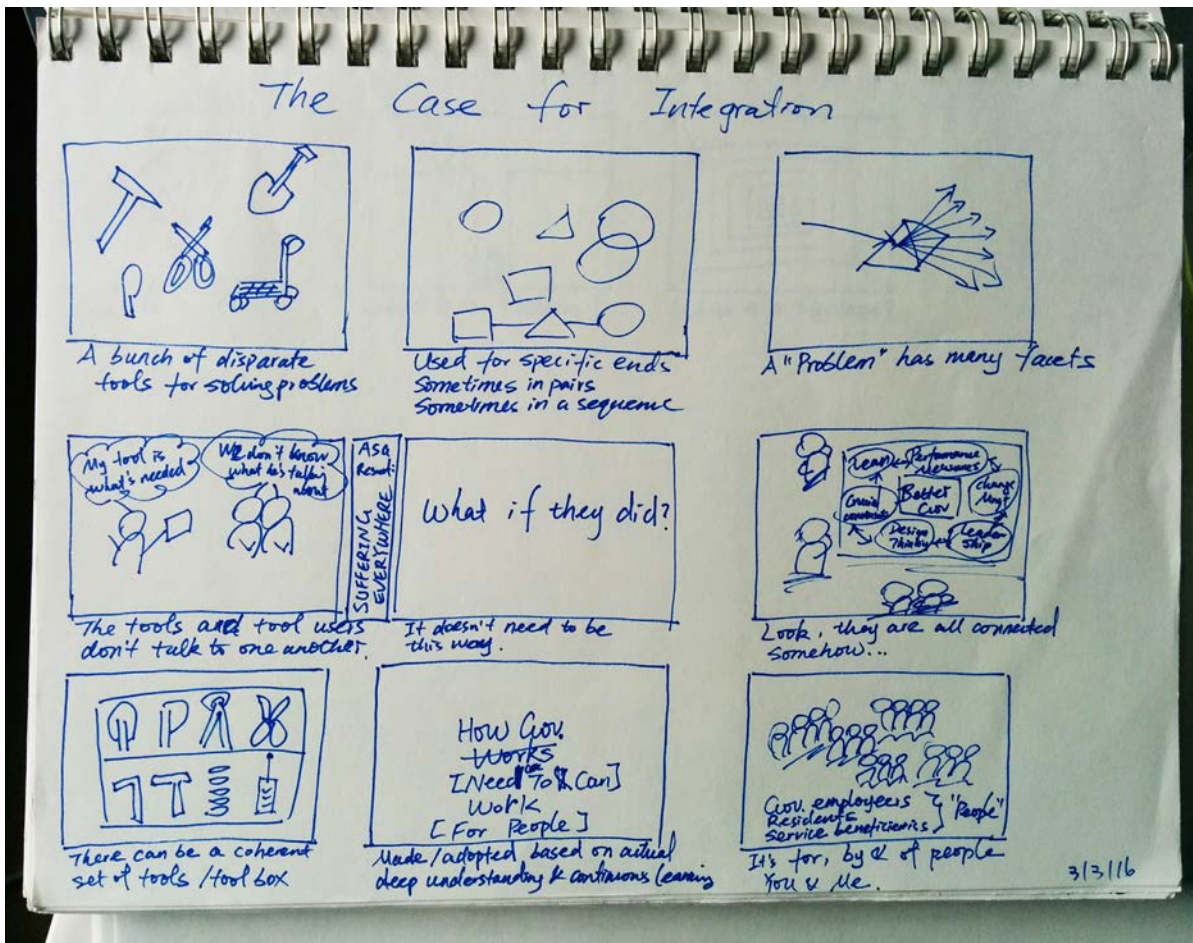 The Case for Integration
A bunch of disparate
tools for solving problems
Used for specific ends
Sometimes in pairs
Sometimes in a sequence
A "Problem" has many facets
My tool is
what's needed
We don't know
what he's talking
about
The tools and tool users
don't talk to one another.
AS a
Result:
SUFFERING
EVERYWHERE
What if they did?
It doesn't need to be
this way.
Lean
Performance
Measures
change
Mngt
Leader
ship
Design
Thinking
Crucial
Better
Gov
Look, they are all connected
somehow...
There can be a coherent
set of tools / tool box
How Gov.
Works
[Need To & Can]
Work
[For People]
Made/adopted based on actual
deep understanding & continuous learning
Gov. employees
Residents
Service beneficiaries
"People"
It's for, by & of people
You & Me.
3/3/16